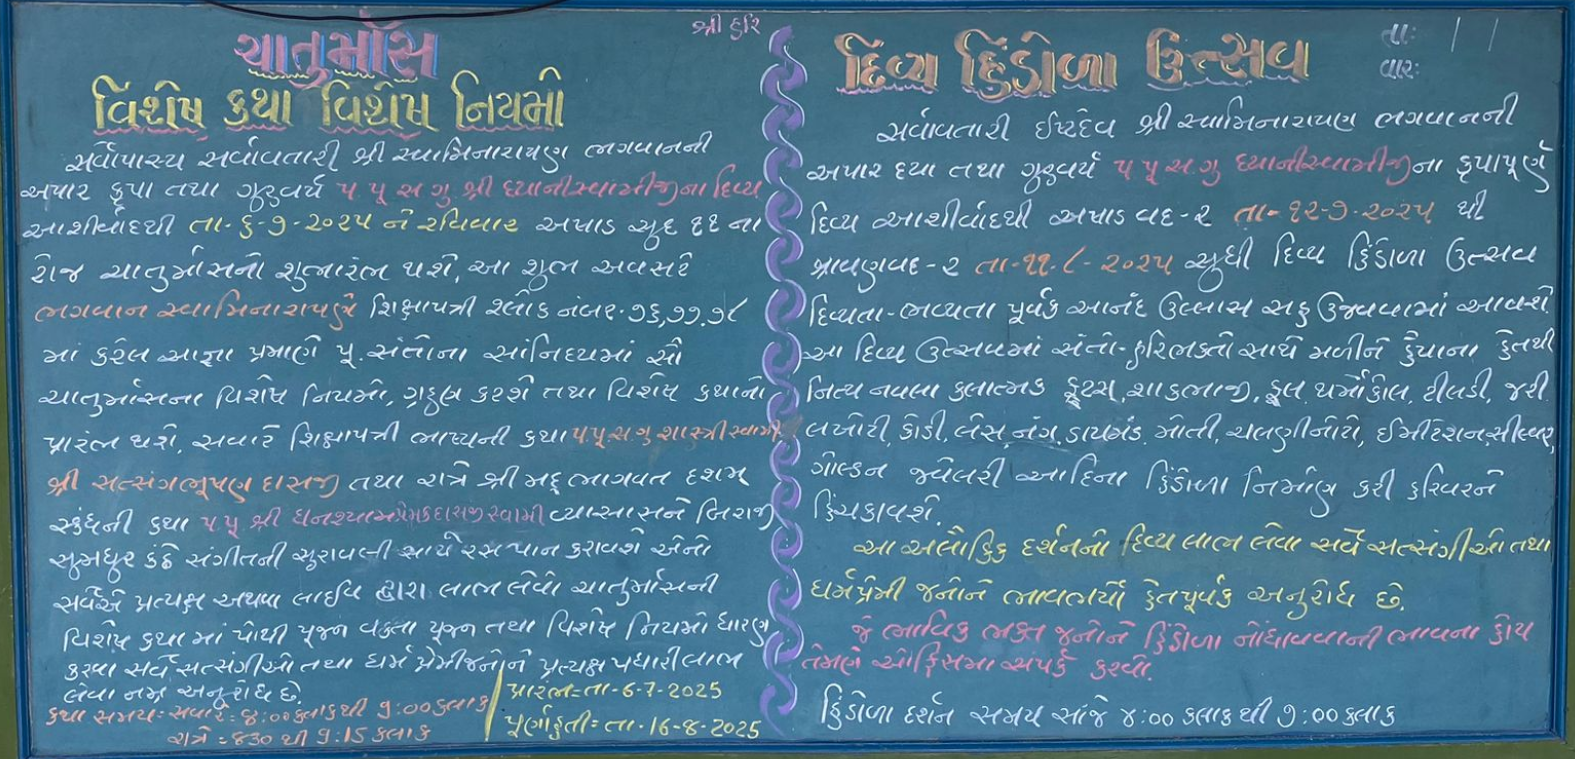 શ્રી હરિ
ચાતુર્માસ
વિશેષ કથા વિશેષ નિયમો
સર્વોપાસ્ય સર્વાવતારી શ્રી સ્વામિનારાયણ ભગવાનની
અપાર કૃપા તથા ગુરુવર્ય પ.પૂ.સ.ગુ.શ્રી ધ્યાનીસ્વામીજીના દિવ્ય
આશીર્વાદથી તા.૬-૭-૨૦૨૫ ને રવિવાર અષાડ સુદ ૧૧ ના
રોજ ચાતુર્માસનો શુભારંભ થશે, આ શુભ અવસરે
ભગવાન સ્વામિનારાયણે શિક્ષાપત્રી શ્લોક નંબર-૭૬,૭૭,૭૮
માં કરેલ આજ્ઞા પ્રમાણે પૂ.સંતોના સાંનિધ્યમાં સૌ
ચાતુર્માસના વિશેષ નિયમો, ગ્રહણ કરશે તથા વિશેષ કથાનો
પ્રારંભ થશે, સવારે શિક્ષાપત્રી ભાષ્યની કથા પ.પૂ.સ.ગુ.શાસ્ત્રીસ્વામી
શ્રી સત્સંગભૂષણ દાસજી તથા રાત્રે શ્રીમદ્ ભાગવત દશમ્
સ્કંધની કથા પ.પૂ.શ્રી ઘનશ્યામપ્રેમદાસજીસ્વામી વ્યાસાસને બિરાજી
સુમધુર કંઠે સંગીતની સુરાવલી સાથે રસપાન કરાવશે એનો
સર્વેએ પ્રત્યક્ષ અથવા લાઈવ દ્વારા લાભ લેવો ચાતુર્માસની
વિશેષ કથા માં પોથી પૂજન વક્તા પૂજન તથા વિશેષ નિયમો ધારણ
કરવા સર્વે સત્સંગીઓ તથા ધર્મ પ્રેમીજનોને પ્રત્યક્ષ પધારી લાભ
લેવા નમ્ર અનુરોધ છે.
કથા સમય: સવારે: ૮:૦૦ કલાક થી 9:૦૦ કલાક
રાત્રે: ૮૩૦ થી 9:15 કલાક
પ્રારંભ=તા-6-7-2025
પૂર્ણાહુતી= તા.-16-8-2025
દિવ્ય હિંડોળા ઉત્સવ
તા: / /
વાર:
સર્વાવતારી ઈષ્ટદેવ શ્રી સ્વામિનારાયણ ભગવાનની
અપાર દયા તથા ગુરુવર્ય પ.પૂ.સ.ગુ ધ્યાનીસ્વામીજીના કૃપાપૂર્ણ
દિવ્ય આશીર્વાદથી અષાડ વદ-૨ તા-૧૨-૭-૨૦૨૫ થી
શ્રાવણવદ-૨ તા-૧૧.૮-૨૦૨૫ સુધી દિવ્ય હિંડોળા ઉત્સવ
દિવ્યતા-ભવ્યતા પૂર્વક આનંદ ઉલ્લાસ સહ ઉજવવામાં આવશે.
આ દિવ્ય ઉત્સવમાં સંતો-હરિભક્તો સાથે મળીને હૈયાના હેતથી
નિત્ય નવલા કલાત્મક ફ્રૂટસ, શાકભાજી, ફૂલ, થર્મોકોલ, ટીલડી, જરી
લખોટી, કોડી, લેસ, નંગ, ડાયમંડ, મોતી, ચલણીનોટો, ઈમીટેશન,સીલ્વર,
ગોલ્ડન જ્વેલરી આદિના હિંડોળા નિર્માણ કરી હરિવરને
હિંચકાવશે.
આ અલૌકિક દર્શનનો દિવ્ય લાભ લેવા સર્વે સત્સંગીઓ તથા
ધર્મપ્રેમી જનોને ભાવભર્યો હેતપૂર્વક અનુરોધ છે.
જે ભાવિક ભક્ત જનોને હિંડોળા નોંધાવવાની ભાવના હોય
તેમણે ઓફિસમા સંપર્ક કરવો.
હિંડોળા દર્શન સમય સાંજે ૪:00 કલાક થી ૭:00 કલાક